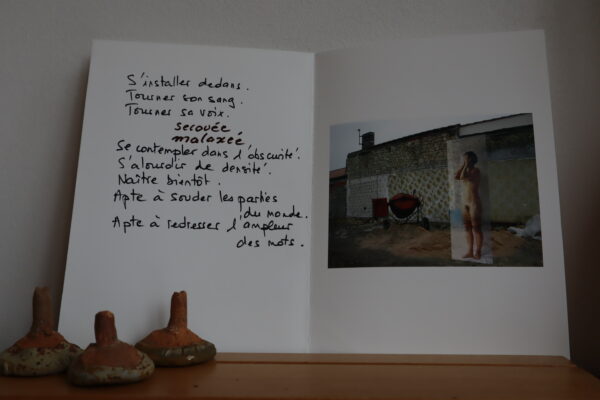 S'installer dedans.
Tourner son sang.
Tourner sa voix.
secouée
malaxée
Se contempler dans l'obscurité.
S'alourdir de densité.
Naître bientôt.
Apte à souder les parties
du monde.
Apte à redresser l'ampleur
des mots.